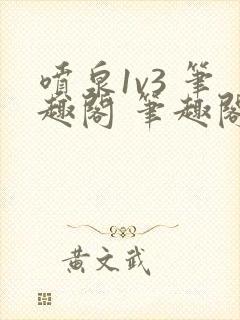 噴泉1v3 筆
趣閣 筆趣閣
黃文武